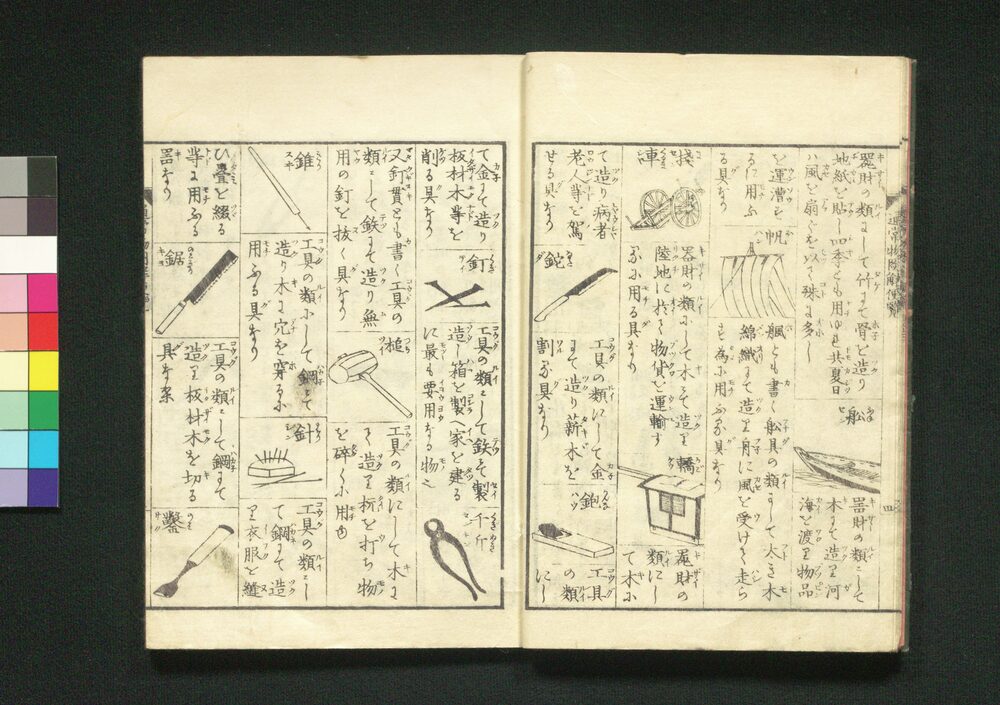 器財の類にして竹にて骨を造り
地紙を貼し四季とも用ゆれ共夏日
ハ風を扇ぐを以て殊に多し
舩
器財の類にして
木にて造り河
海を渡り物品
を運漕す
るに用ふ
る具なり
帆
颿とも書く舩具の類にして大き木
綿織にて造り舟に風を受けて走ら
も為に用ふる具なり
桟車
器財の類にして木にて造り
陸地に於て物貨を運輸す
るに用る具なり
轎
器財の
類にし
て木に
て造り病者
老人等を駕
せる具なり
鉈
工具の類にして金
にて造り薪木を
割る具なり
鉋
工具
の類
にし
て金にて造り
板材木等を
削る具なり
釘
工具の類にして鉄にて製
造し箱を製へ家を建る
に最も要用なる物也
千斤
又釘貫とも書く工具の
類にして鉄にて造り無
用の釘を抜く具なり
槌
工具の類にして木に
て造り析を打ち物
を碎くに用也
錐
工具の類にして鋼にて
造り木に穴を穿るに
用ふる具なり
針
工具の類にし
て鋼にて造
り衣服を縫
ひ畳を綴る
等に用ふる
器なり
鋸
工具の類にして鋼にて
造り板材木を切る
具なり
鑿
四